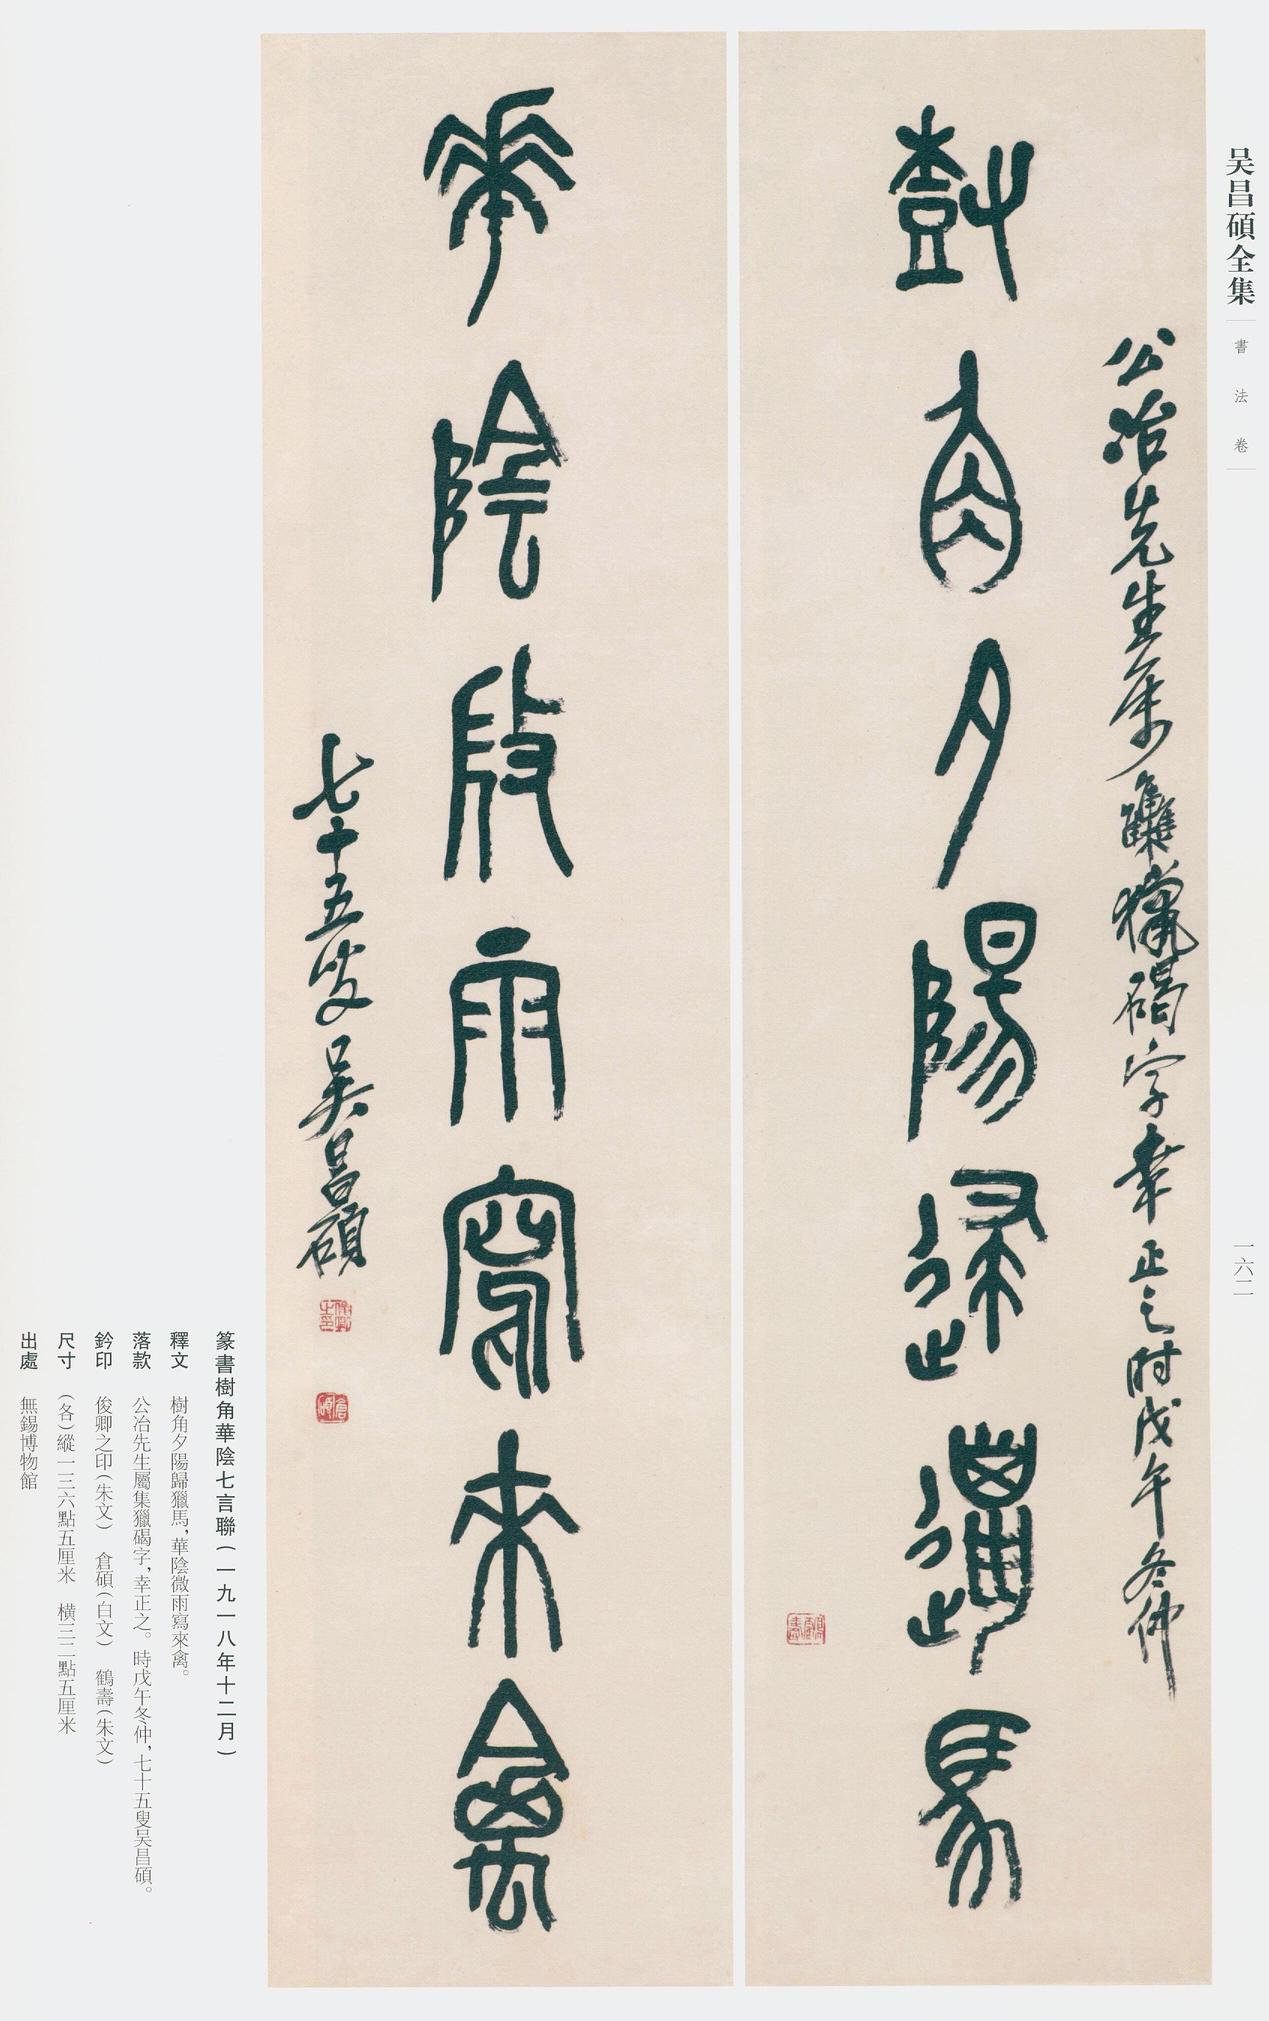 吴昌碩全集
書法卷
一六二
公冶先生屬集獵碣字幸正之時戊午冬仲
樹角夕陽歸獵馬
鶴壽
華陰微雨寫來禽
七十五叟吴昌碩
俊卿之印
倉碩
篆書樹角華陰七言聯(一九一八年十二月)
釋文 樹角夕陽歸獵馬,華陰微雨寫來禽。
落款 公冶先生屬集獵碣字,幸正之。時戊午冬仲,七十五叟吴昌碩。
鈐印 俊卿之印(朱文) 倉碩(白文) 鶴壽(朱文)
尺寸 (各)縱一三六點五厘米 橫三二點五厘米
出處 無錫博物館